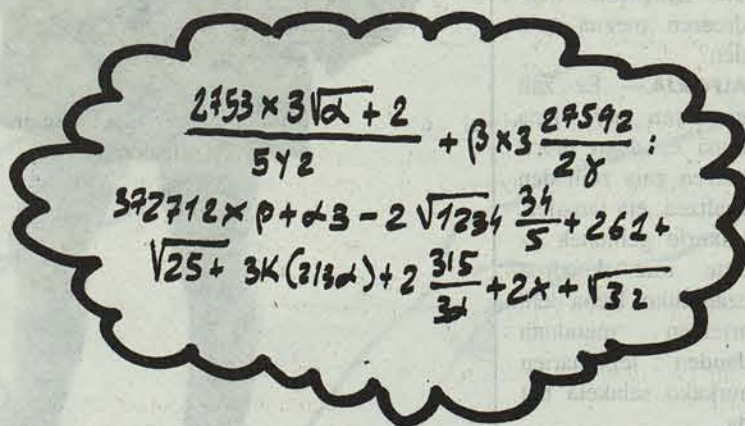 2753 × 3√α + 2
5y2
+ β × 3 27592
2γ :
372712 × β + α3 - 2 √1234 34
5 + 261 +
√25 + 3K (213α) + 2 315
3α + 2x + √32